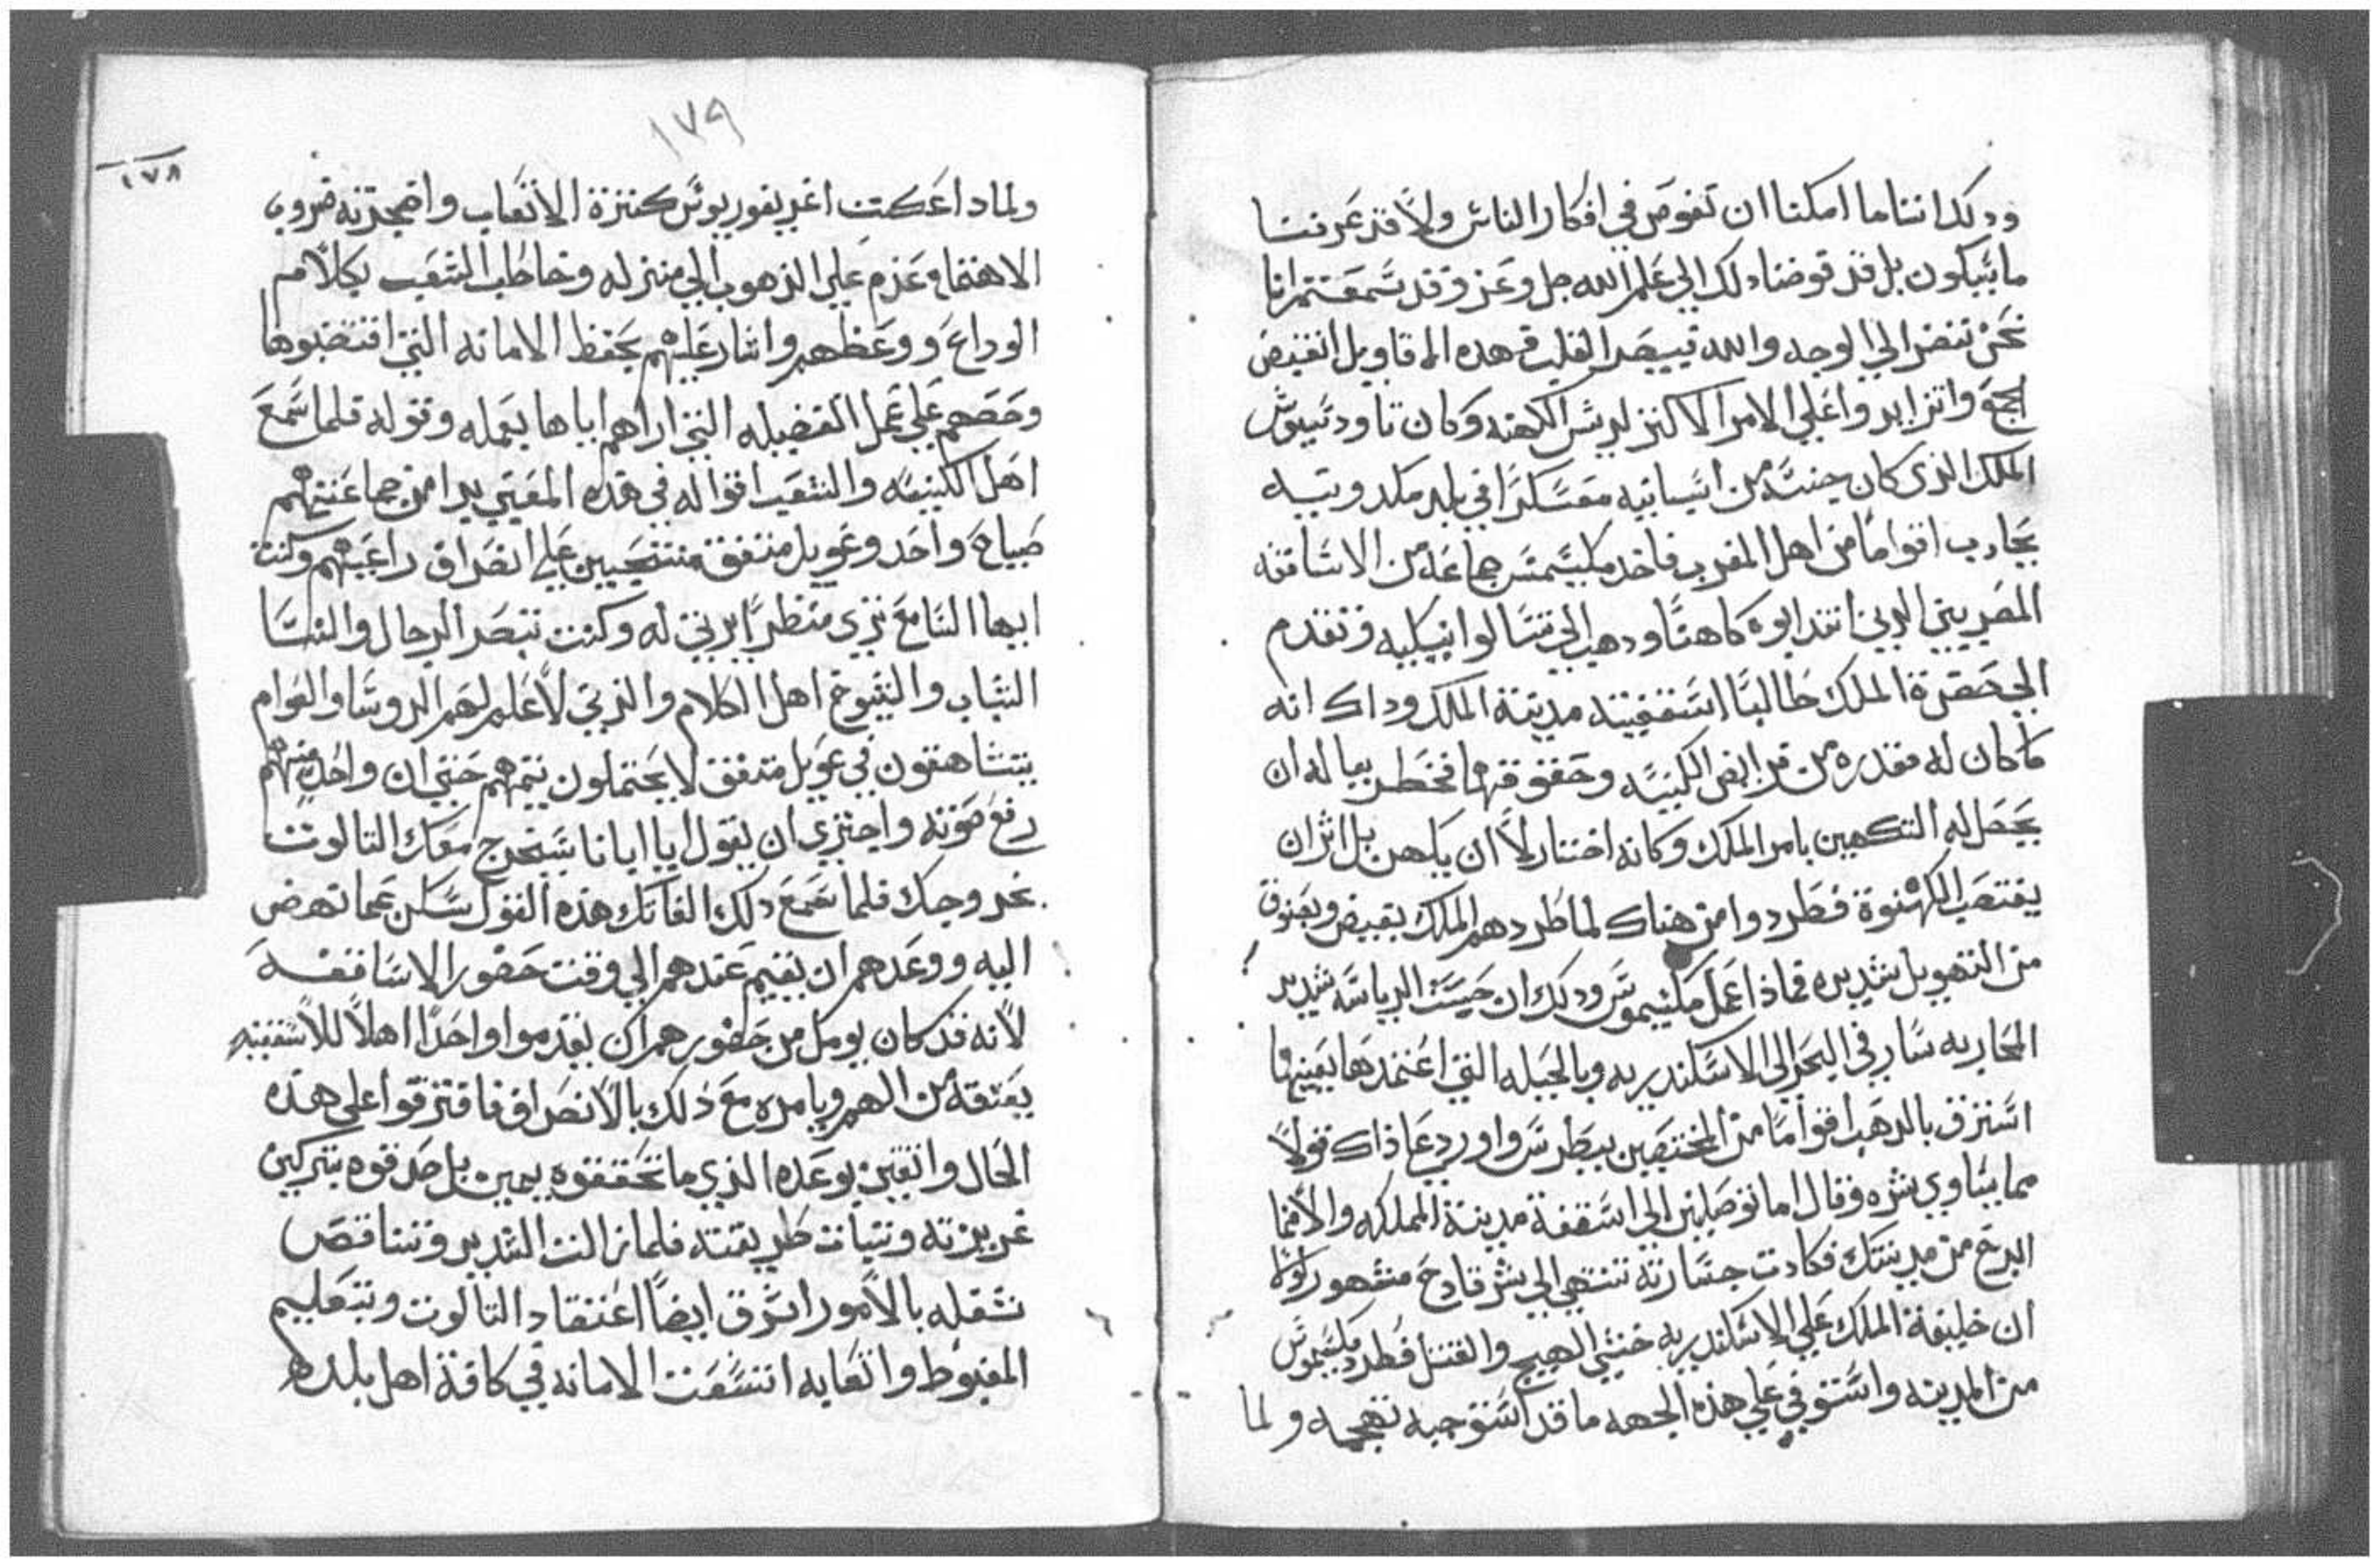 ودكد اننا ما امكنا ان تفوض في افكار الناس ولا قد عرفنا
ما سيكون بل قد فوضنا دلك الي علم الله جل وعز وقد سمعتم انا
نحن ننضر الي الوجه والله يبصر القلب فهده الاقاويل انقبض
واتزايد واعلي الامر الاكتر لريس الكهنه وكان تاودسيوس
الملك الذي كان جنسه من اسبانيه معسكرًا في بلد مكدونيه
يحارب اقوامًا من اهل المغرب فاخد مكسيمس جماعه من الاساقفه
المصريين الدين انتدابوه كاهنًا ودهب الي تسالونيكيه وتقدم
الي حضرة الملك طالبًا اسقفيته مدينة الملك وداك انه
ما كان له مقدره من قرايض الكنيسه وحقوقها فخطر بباله ان
يحصل له التكهين بامر الملك وكانه اختار لا ان يكهن بل اثر ان
يغتصب الكهنوة فطردوا من هناك لما طردهم الملك بقبض وبصوت
من التهويل شديده فماذا عمل مكسيموس ودلك ان حيست الرياسه شديد
المحاربه سار في البحر الي الاسكندريه وبالحيله التي اعتمدها بعينها
استرق بالدهب اقوامًا من المختصين ببطرس واورد عا ذاك قولًا
مما يساوي شره وقال اما توصلني الي اسقفة مدينة المملكه والا فما
ابرح من مدينتك فكادت جسارته تنتهي الي شر قادح مشهور لولا
ان خليفة الملك علي الاسكندريه خشي الهيج والفتن فطرد مكسيموس
من المدينه واستوفي علي هذه الجهه ما قد استوجبه تهجمه ولما
١٧٩
١٧٨
ولما داعكت اغريغوريوس كترة الاتعاب واضجرته ضروب
الاهتمام عزم علي الذهوب الي منزله وخاطب الشعب بكلام
الوداع ووعظهم واشار عليهم بحفظ الامانه التي اقتضبوها
وحضهم علي عمل الفضيله التي اراهم اياها بعمله وقوله فلما سمع
اهل الكنيسه والشعب اقواله في هذه المعني بدا من جماعتهم
صياح واحد وعويل متفق منتحبين علي انصراف راعيهم وكنت
ايها السامع تري منظرًا يرني له وكنت تبصر الرجال والنسا
الشباب والشيوخ اهل الكلام والذين لا علم لهم الروسا والعوام
يتشاهقون في عويل متفق لا يحتملون يتمهم حتي ان واحد منهم
رفع صوته واجتري ان يقول يا ابانا سيخرج معك التالوت
بخروجك فلما سمع دلك الفاتك هذه القول سكن عما نهض
اليه ووعدهم ان يقيم عندهم الي وقت حضور الاساقفه
لانه قد كان يومل من حضورهم ان يقدموا واحدًا اهلًا للاسقفيه
يعتقه من الهم ويامره مع ذلك بالانصراف فافترقوا علي هذه
الحال واتقين بوعده الذي ما تحققوه بيمين بل صدقوه بتركين
غريزته وتبات طريقته فلما زالت الشدير وتناقص
شغله بالامور اشرق ايضًا اعتقاد التالوت وبتعليم
المغبوط واتعابه اتسعت الامانه في كافة اهل بلده